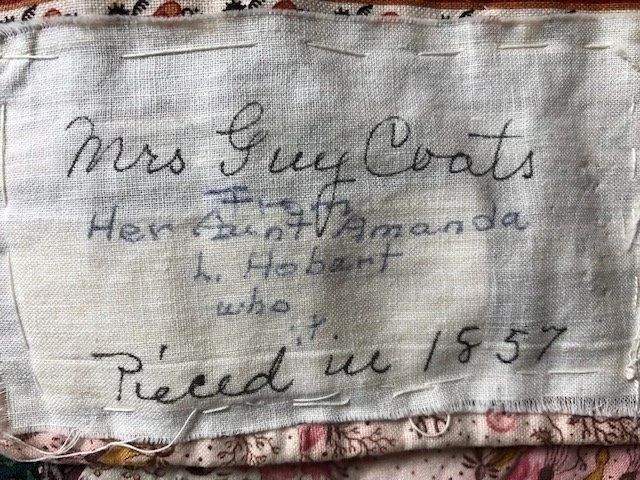 Mrs Guy Coats
From
Her Aunt Amanda
L. Hobart
who
it
Pieced in 1857